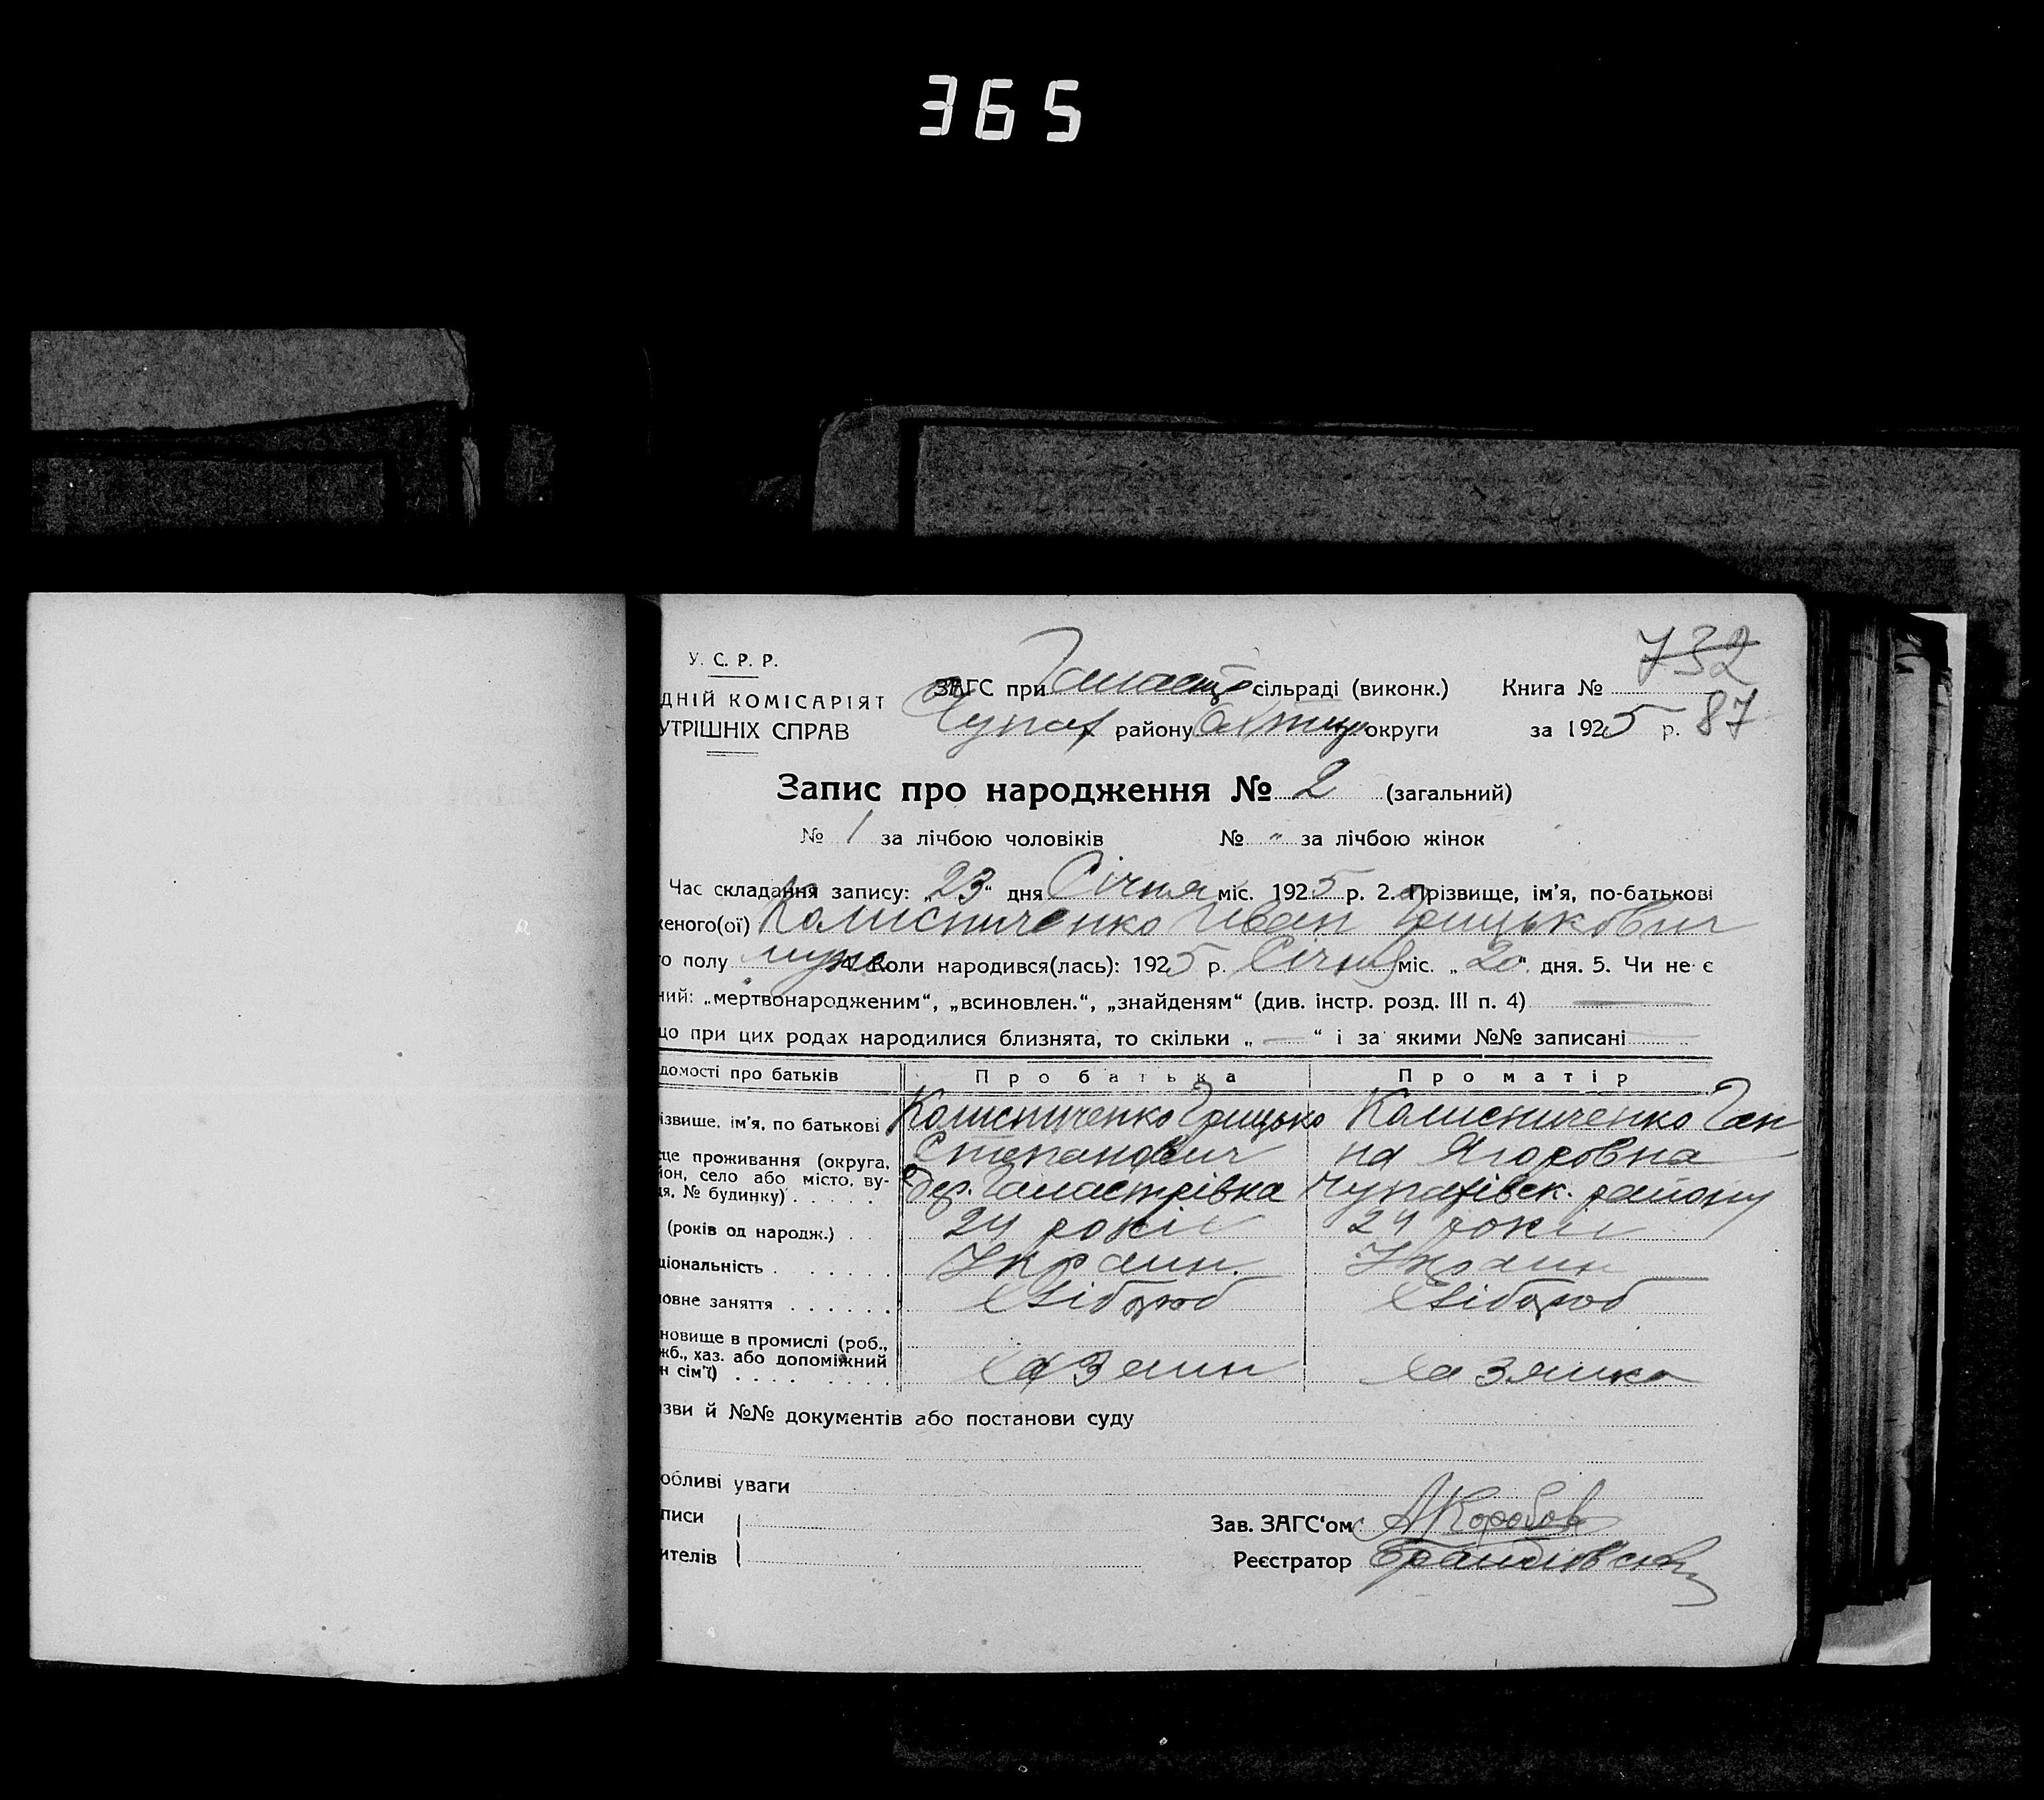 365
732
У. С. Р. Р.
ДНІЙ КОМІСАРІЯТ
УТРІШНІХ СПРАВ
ЗАГС при сільраді (виконк.) Книга №
Чупах району Охтир округи за 1925 р. 87
Запис про народження № 2 (загальний)
№ 1 за лічбою чоловіків № " за лічбою жінок
Час складання запису: „23“ дня Січня міс. 1925 р. 2. Прізвище, ім'я, по-батькові
женого(ої) Колисниченко Иван Грицькович
о полу муж. Коли народився(лась): 1925 р. Січня міс. „20“ дня. 5. Чи не є
ний: „мертвонародженим“, „всиновлен.“, „знайденям“ (див. інстр. розд. III п. 4) —
що при цих родах народилися близнята, то скільки „ — “ і за якими №№ записані —
домості про батьків Про батька Про матір
ізвище, ім'я, по батькові Колисниченко Грицько Колисниченко Ган
Степанович на Ягоровна
сце проживання (округа,
йон, село або місто, ву-
ця, № будинку) . . . . . дер. Галастрівка Чупахівск. району
(років од народж.) . . 24 років 24 років
ціональність . . . . . . Украин. Украин
овне заняття . . . . . . Хлібороб Хлібороб
новище в промислі (роб.,
жб., хаз. або допоміжний
н сім'ї) . . . . . . . . Хазяин Хазяика
азви й №№ документів або постанови суду
обливі уваги
писи
Зав. ЗАГС'ом АКоробов
ителів
Реєстратор